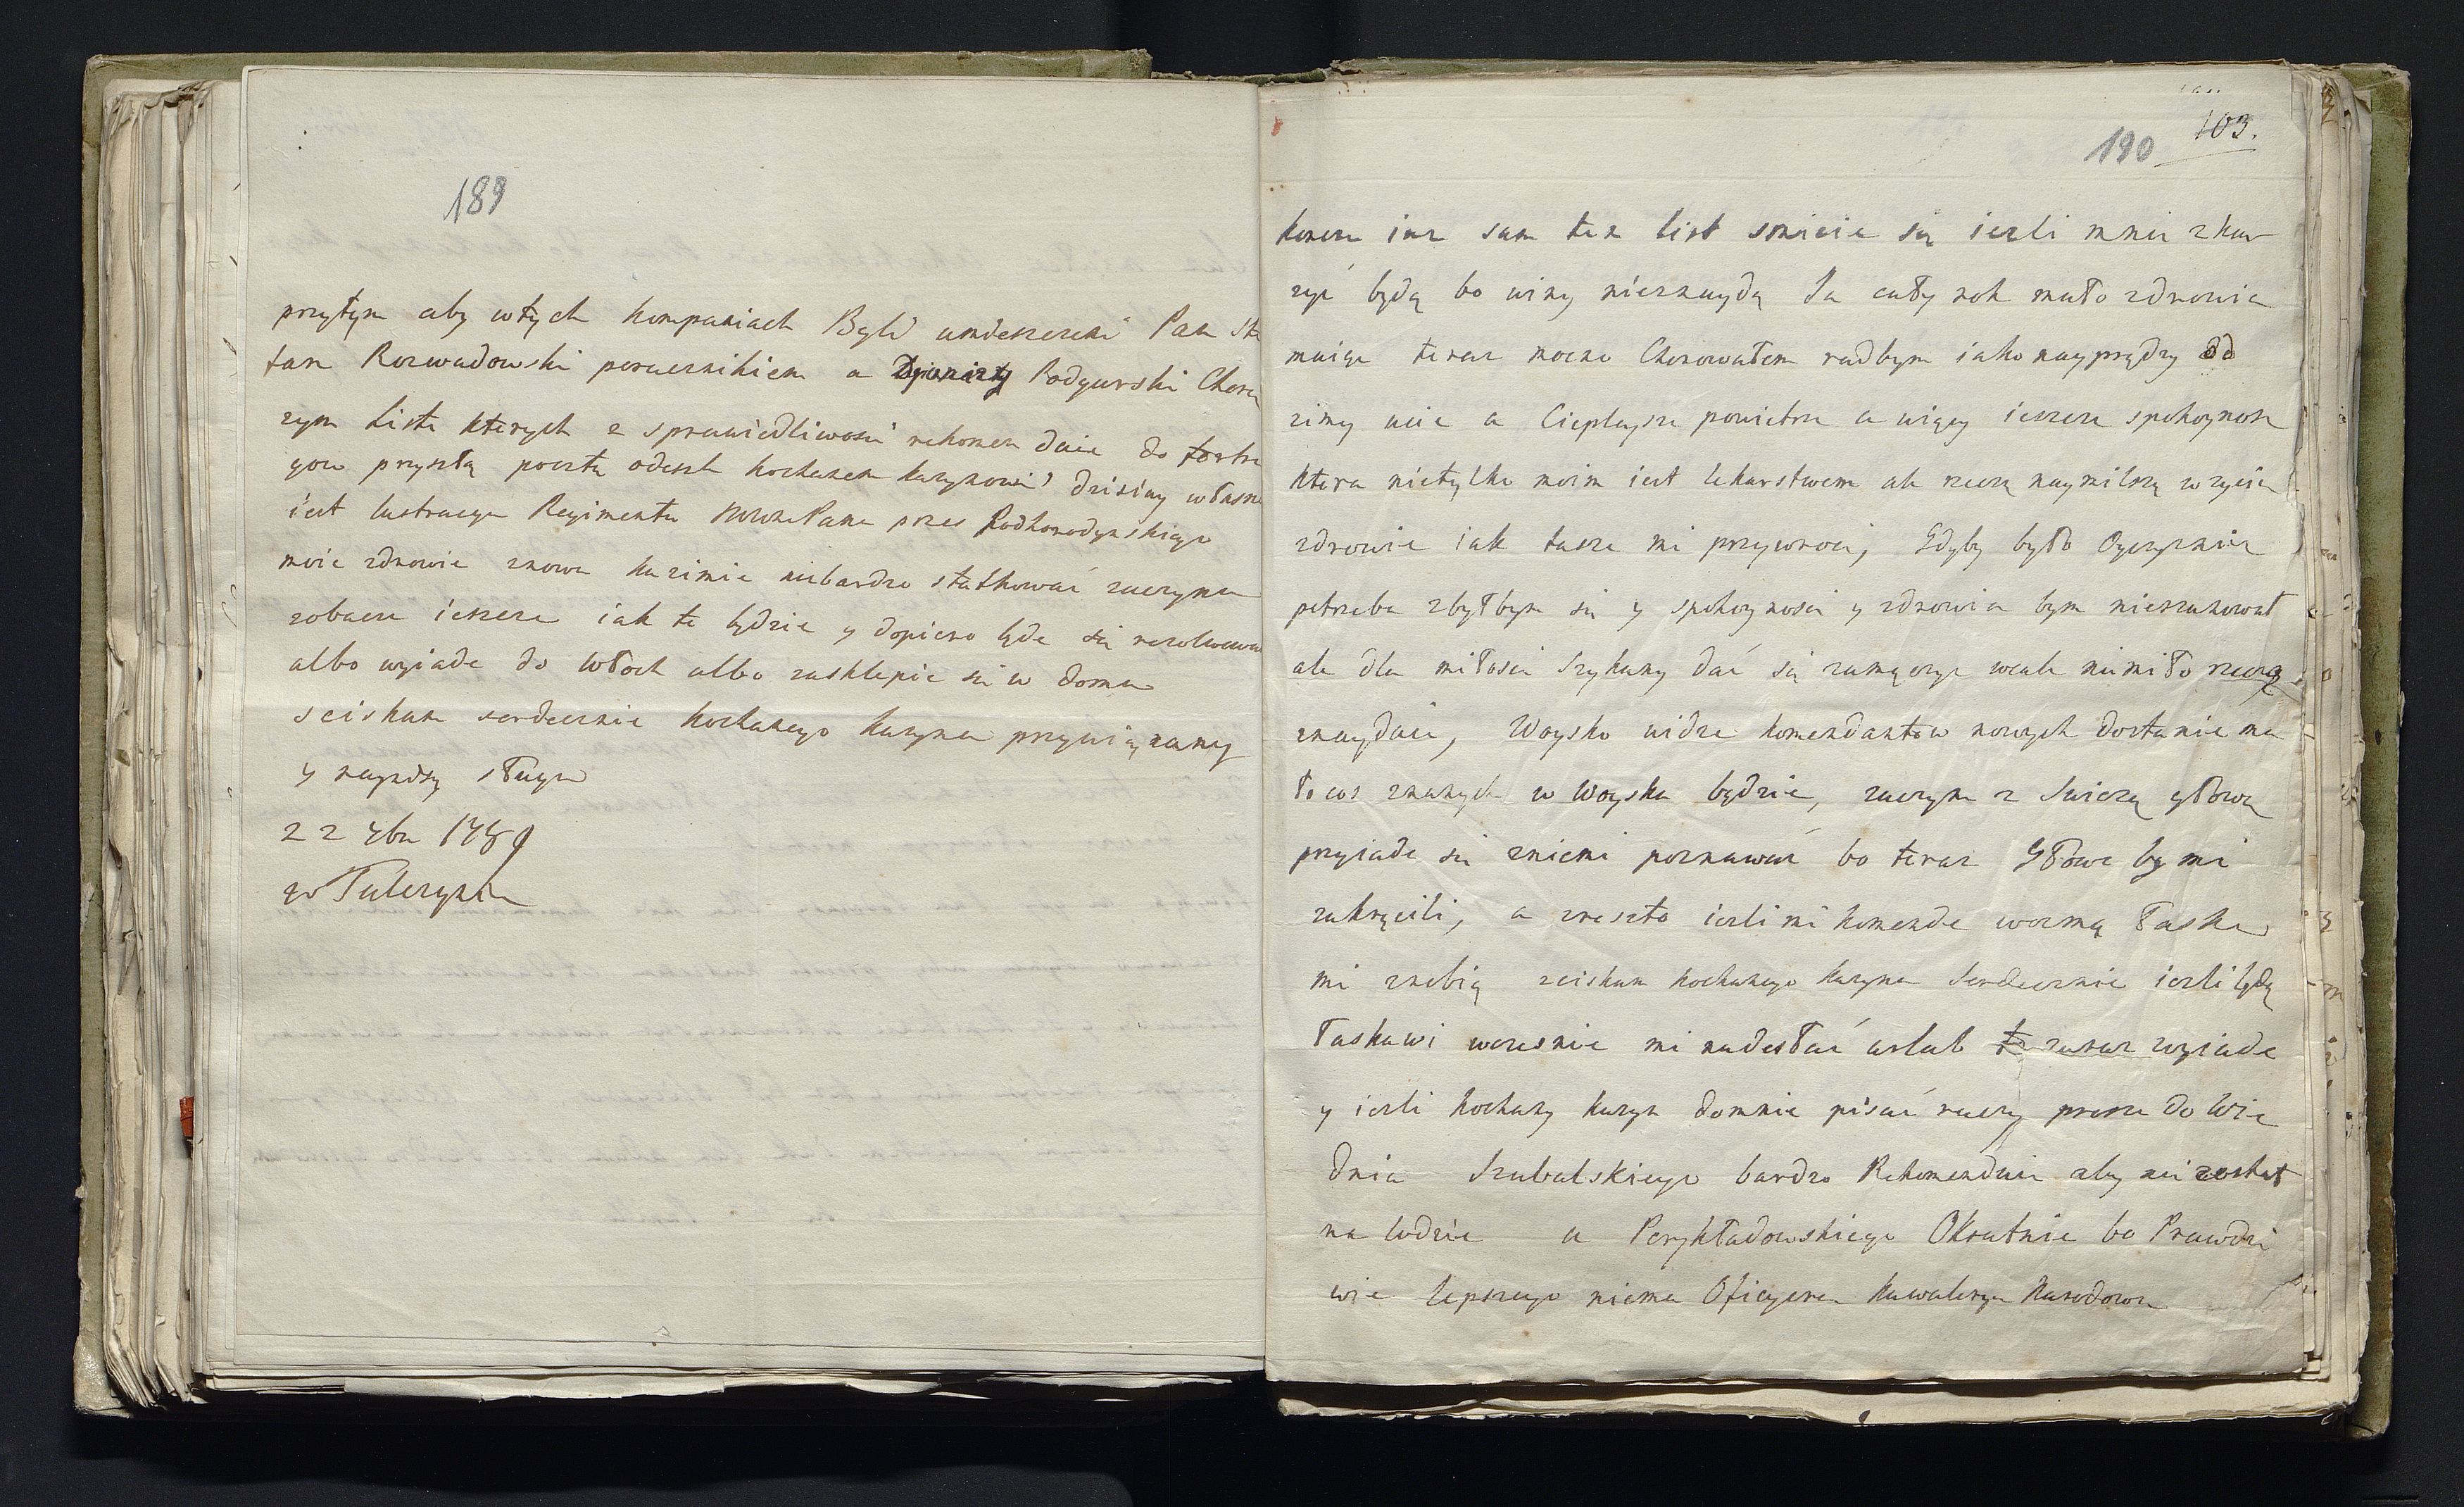 189
przytym aby wtych kompaniach Byli umieszczeni Pan Sta
tan Rozwadowski porucznikiem a Dyonizy Podgurski Chorą
zym Liste kturych z sprawiedliwosci rekomen duie do
gow przyszłą pocztą odeszle kochanem kuzynowi dzisiay własn
iest lustracya Regimentu przes Podhorodynskiego
moie zdrowie znowu ku zimie niebardzo statkować zaczyna
zobacze ieszcze iak to będzie y dopiero będe się rezolwowa
albo wyiade do Włoch albo zasklepie się w domu
sciskam serdecznie kochanego kuzyna przywiązany
y nayszy sługa
22 7bra 1789
w Tulczynie
190 103.
koncze iuz sam ten list smieie się iezli mnie zkar
zyć będą bo winy nieznaydą Ja cały rok mało zdrowia
maiąc teraz mocno Chorowałem radbym iako nayprędzy od
zimy ucie a Cieplaysze powietrze a więcy ieszcze spokoynosc
ktora nietylko moim iest lekarstwem ale rzeczą naymilszą w zyciu
zdrowie iak tusze mi przywroci, Gdyby było Oyczyznie
potrzeba zbyłbym się y spokoynosci y zdrowia bym nieszanował
ale dla miłosci Szykany dać się zamęczyc wcale niemiło rzeczą
znayduie, Woysko widze komendantow nowych dostanie ma
ło cos znanych w Woysku będzie, zaczym z Swiezą głową
przyiade się zniemi poznawać bo teraz Głowe by mi
zakręcili, a zreszto iezli mi komende wezmą Łaske
mi zrobią sciskam kochanego kuzyna Serdecznie iezli będą
Łaskawi wczesnie mi nadesłać urlab to zaraz wyiade
y iezli kochany kuzyn domnie pisać raczy prosze do Wie
dnia Szubalskiego bardzo Rekomenduie aby nie został
na lodzie a Perykładowskiego Okrutnie bo Prawdzi
wie lepszego niema Oficyera kawalerya Narodowa